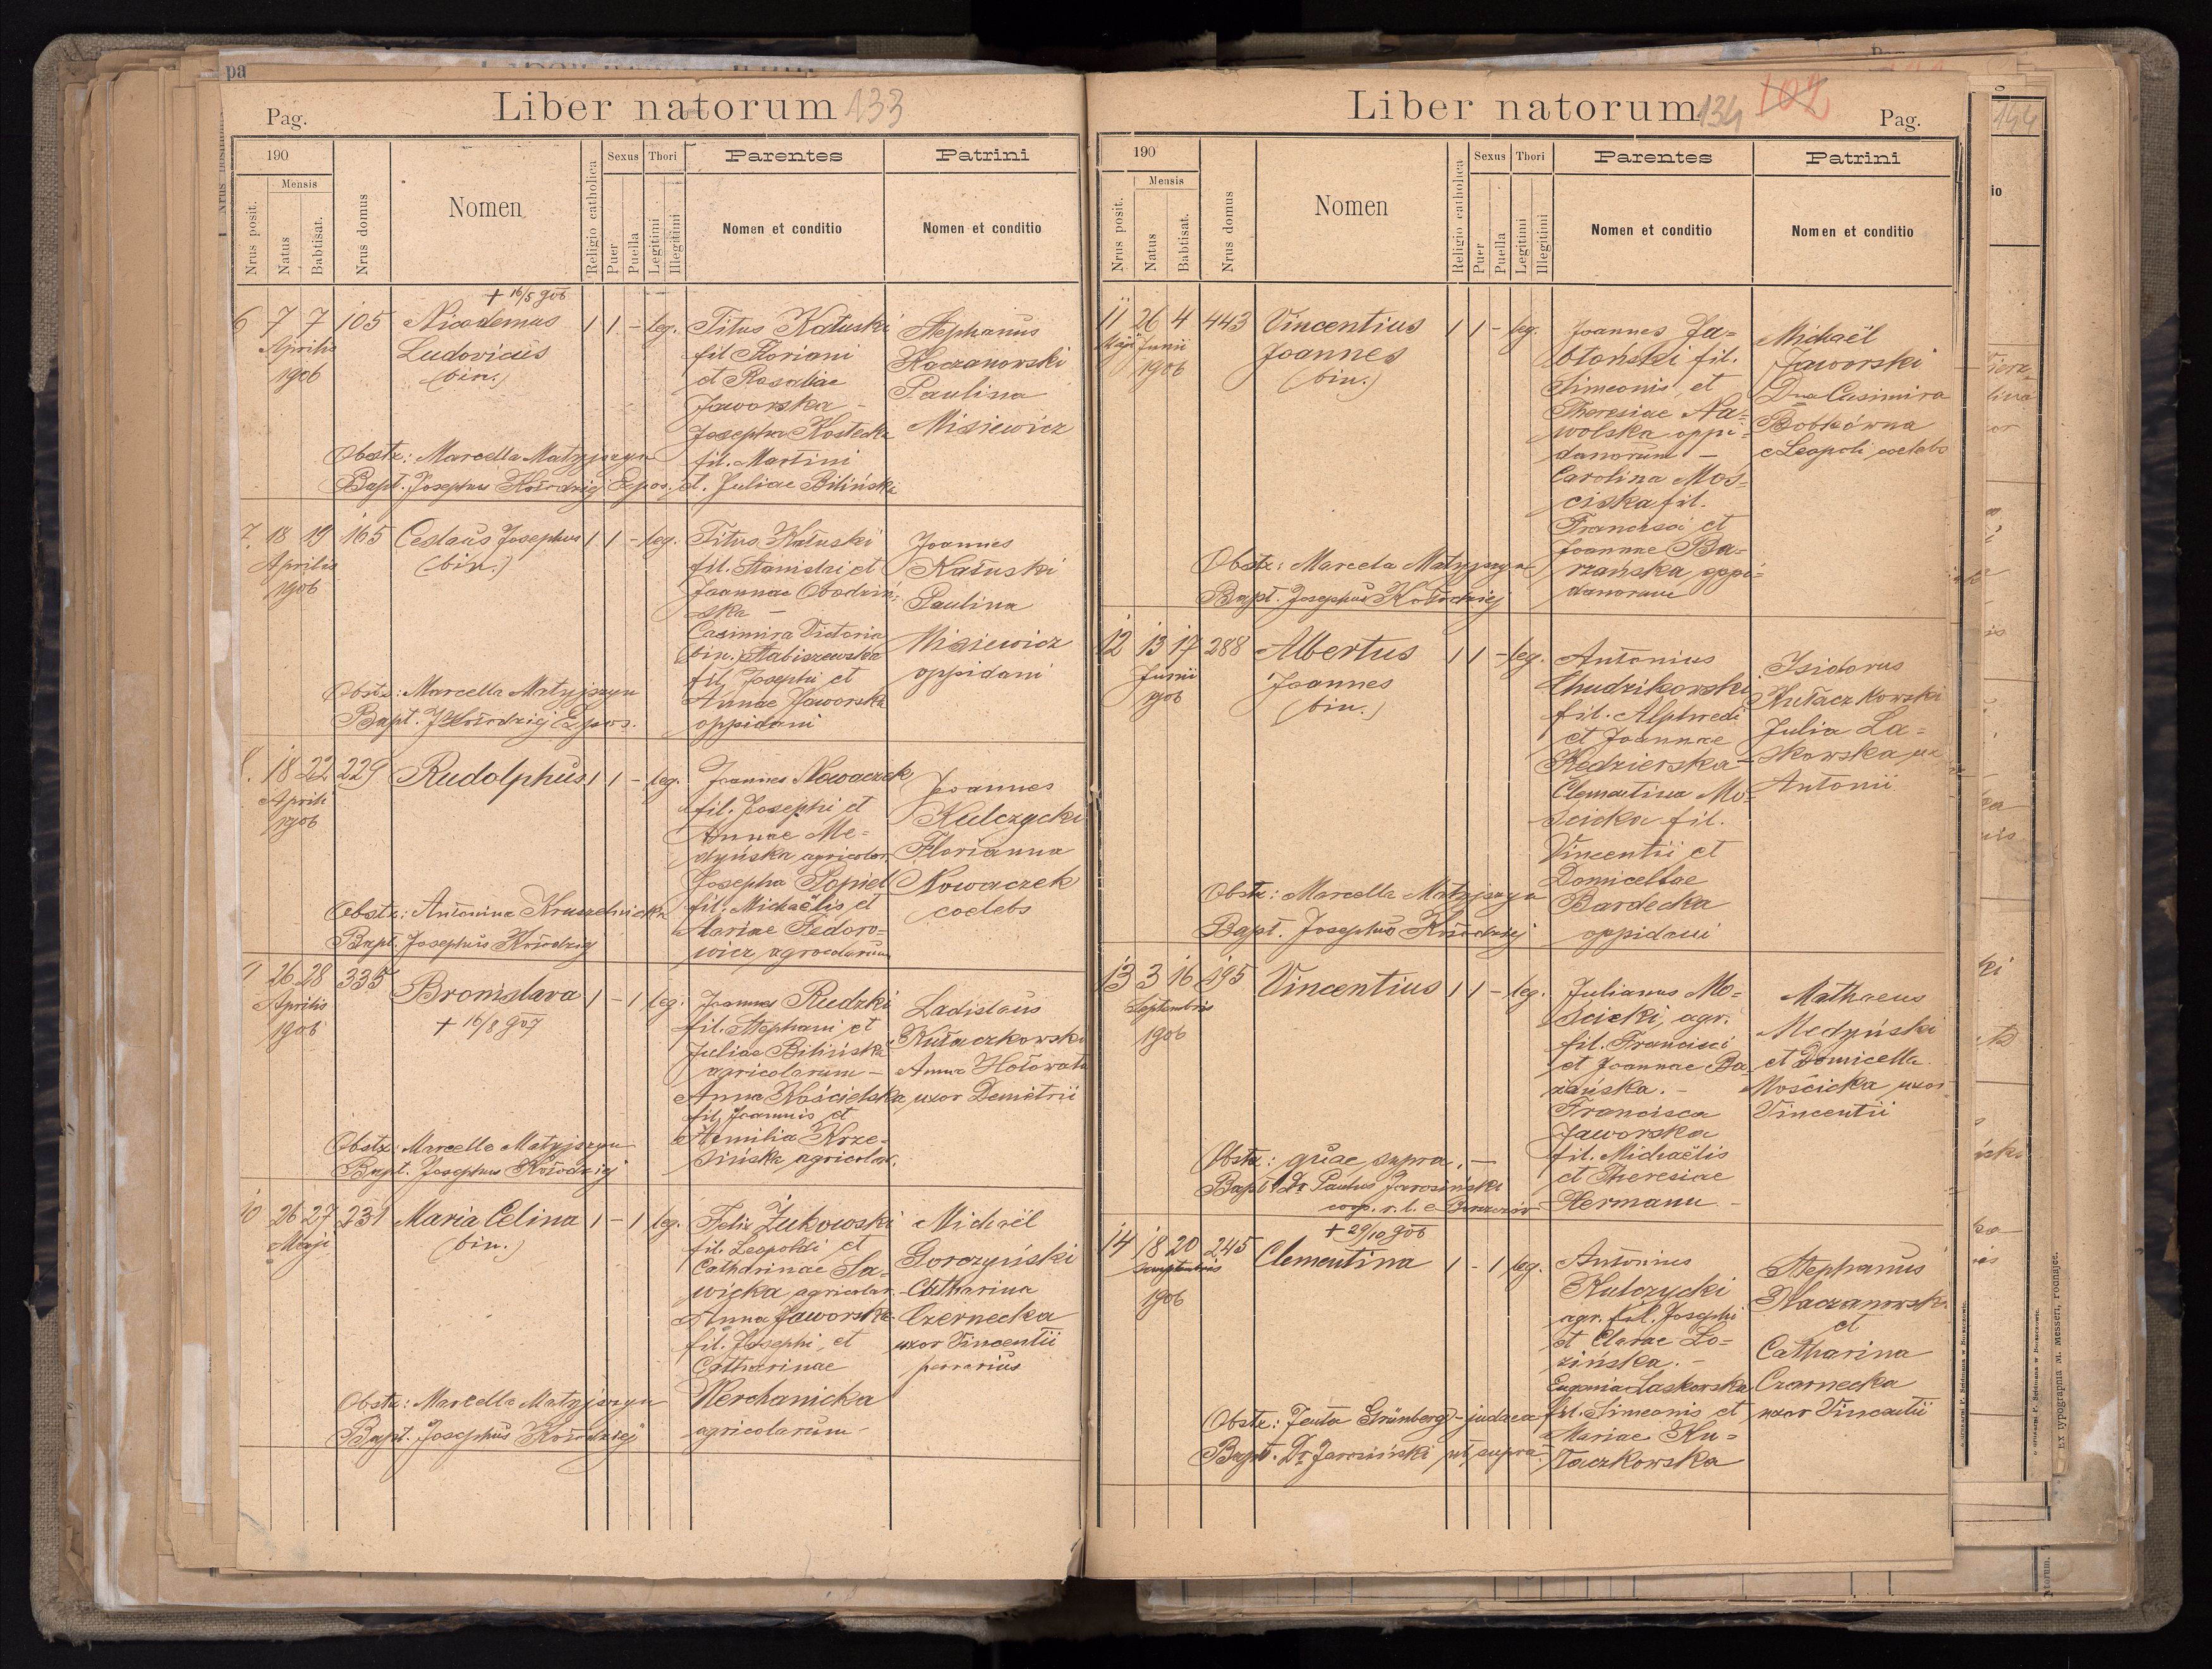 Liber natorum 133
Pag.
190
Mensis
Nrus posit.
Natus
Babtisat.
Nrus domus
Nomen
Religio catholica
Sexus
Puer
Puella
Thori
Legitimi
Illegitimi
Parentes
Nomen et conditio
Patrini
Nomen et conditio
+ 16/5 906
6 7 7 105 Nicodemus 1 1 - leg.
Aprilis Ludovicus
1906 (bin.)
Titus Kałuski
fil Floriani
et Rosaliae
Jaworska -
Josepha Kostecka
fil. Martini
et Juliae Bilińska
Stephanus
Kaczanowski
Paulina
Misiewicz
Obstr: Marcella Matyjszyn
Bapt. Josephus Kołodziej Expos.
7. 18 19 165 Ceslaus Josephus 1 1 - leg.
Aprilis (bin.)
1906
Titus Kałuski
fil. Stanislai et
Joannae Obodziń-
ska -
Casimira Victoria
bin. Stabiszewska
fil. Josephi et
Annae Jaworska
oppidani
Joannes
Kałuski
Paulina
Misiewicz
oppidani
Obstr: Marcella Matyjszyn
Bapt. J. Kołodziej Expos.
8. 18 22 229 Rudolphus 1 1 - leg.
Aprili
1906
Joannes Nowaczek
fil. Josephi et
Annae Me=
dyńska agricolar.
Josepha Popiel
fil. Michaëlis et
Mariae Fedoro=
wicz agricolarum
Joannes
Kulczycki
Florianna
Nowaczek
coelebs
Obstr: Antonina Kruszelnicka
Bapt. Josephus Kołodziej
9 26 28 335 Bronislava 1 - 1 leg.
Aprilis + 16/8 907
1906
Joannes Rudzki
fil. Stephani et
Juliae Bilińska
agricolarum -
Anna Kościelska
fil. Joannis et
Aemilia Krze-
sińska agricolar.
Ladislaus
Kułaczkowski
Anna Hołowata
uxor Demetrii
Obstr: Marcella Matyjszyn
Bapt. Josephus Kołodziej
10 26 27 231 Maria Celina 1 - 1 leg.
Maji (bin.)
Felix Żukowski
fil. Leopoldi et
Catharinae Sa-
wicka agricolar.
Anna Jaworska
fil. Josephi, et
Catharinae
Werchanicka
agricolarum
Michaël
Gorczyński
Catharina
Czernecka
uxor Vincentii
ferrarius
Obstr: Marcella Matyjszyn
Bapt. Josephus Kołodziej
Liber natorum 134 102
Pag.
190
Mensis
Nrus posit.
Natus
Babtisat.
Nrus domus
Nomen
Religio catholica
Sexus
Puer
Puella
Thori
Legitimi
Illegitimi
Parentes
Nomen et conditio
Patrini
Nomen et conditio
11 26 4 443 Vincentius 1 1 - leg.
Maji Junii Joannes
1906 (bin.)
Joannes Ja=
błoński fil.
Simeonis, et
Theresiae Na=
wolska oppi=
danorum -
Carolina Moś=
ciska fil.
Francisci et
Joannae Ba=
rzańska oppi=
danorum
Michaël
Jaworski
Dna Casimira
Bobkówna
e Leopoli coelebs
Obstr: Marcela Matyjszyn
Bapt. Josephus Kołodziej
12 13 17 288 Albertus 1 1 - leg.
Junii Joannes
1906 (bin.)
Antonius
Chudzikowski
fil. Alphredi
et Joannae
Kędzierska -
Clementina Mo-
ścicka fil.
Vincentii et
Domicellae
Bardecka
oppidani
Isidorus
Kułaczkowski
Julia La=
skowska ux
Antonii
Obstr: Marcella Matyjszyn
Bapt. Josephus Kołodziej
13 3 16 195 Vincentius 1 1 - leg.
Septembris
1906
Julianus Mo=
ścicki, agr.
fil. Francisci
et Joannae Ba
rzańska. -
Francisca
Jaworska
fil. Michaëlis
et Theresiae
Hermann -
Mathaeus
Medyński
et Domicella
Mościcka uxor
Vincentii
Obstr: quae supra. -
Bapt. Dr Paulus Jarosiński
coop. r. l. e
+ 29/10 906
14 18 20 245 Clementina 1 - 1 leg.
Septembris
1906
Antonius
Kulczycki
agr. fil. Josephi
et Clarae Lo=
zińska. -
Eugenia Laskowska
fil. Simeonis et
Mariae Ku=
łaczkowska
Stephanus
Kaczanowski
et
Catharina
Czarnecka
uxor Vincentii
Obstr.: Jenta Grünberg - judaea
Bapt. Dr Jarosiński ut supra.
144
EX typographia M. Messeri, rochajec.